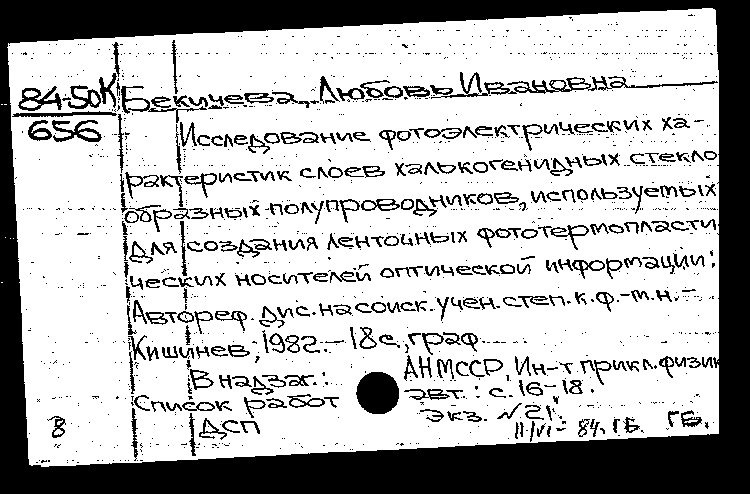 84-50К Бекичева, Любовь Ивановна
656
Исследование фотоэлектрических ха-
рактеристик слоев халькогенидных стекло
образных полупроводников, используемых
для создания ленточных фототермопласти
ческих носителей оптической информации:
Автореф. дис. на соиск. учен. степ. к.ф.-м.н. -
Кишинев, 1982. - 18 с., граф
В надзаг.: АН МССР, Ин-т прикл. физик
Список работ авт.: с. 16-18.
ДСП экз. №21.
8 11/VI - 84. ГБ. ГБ.